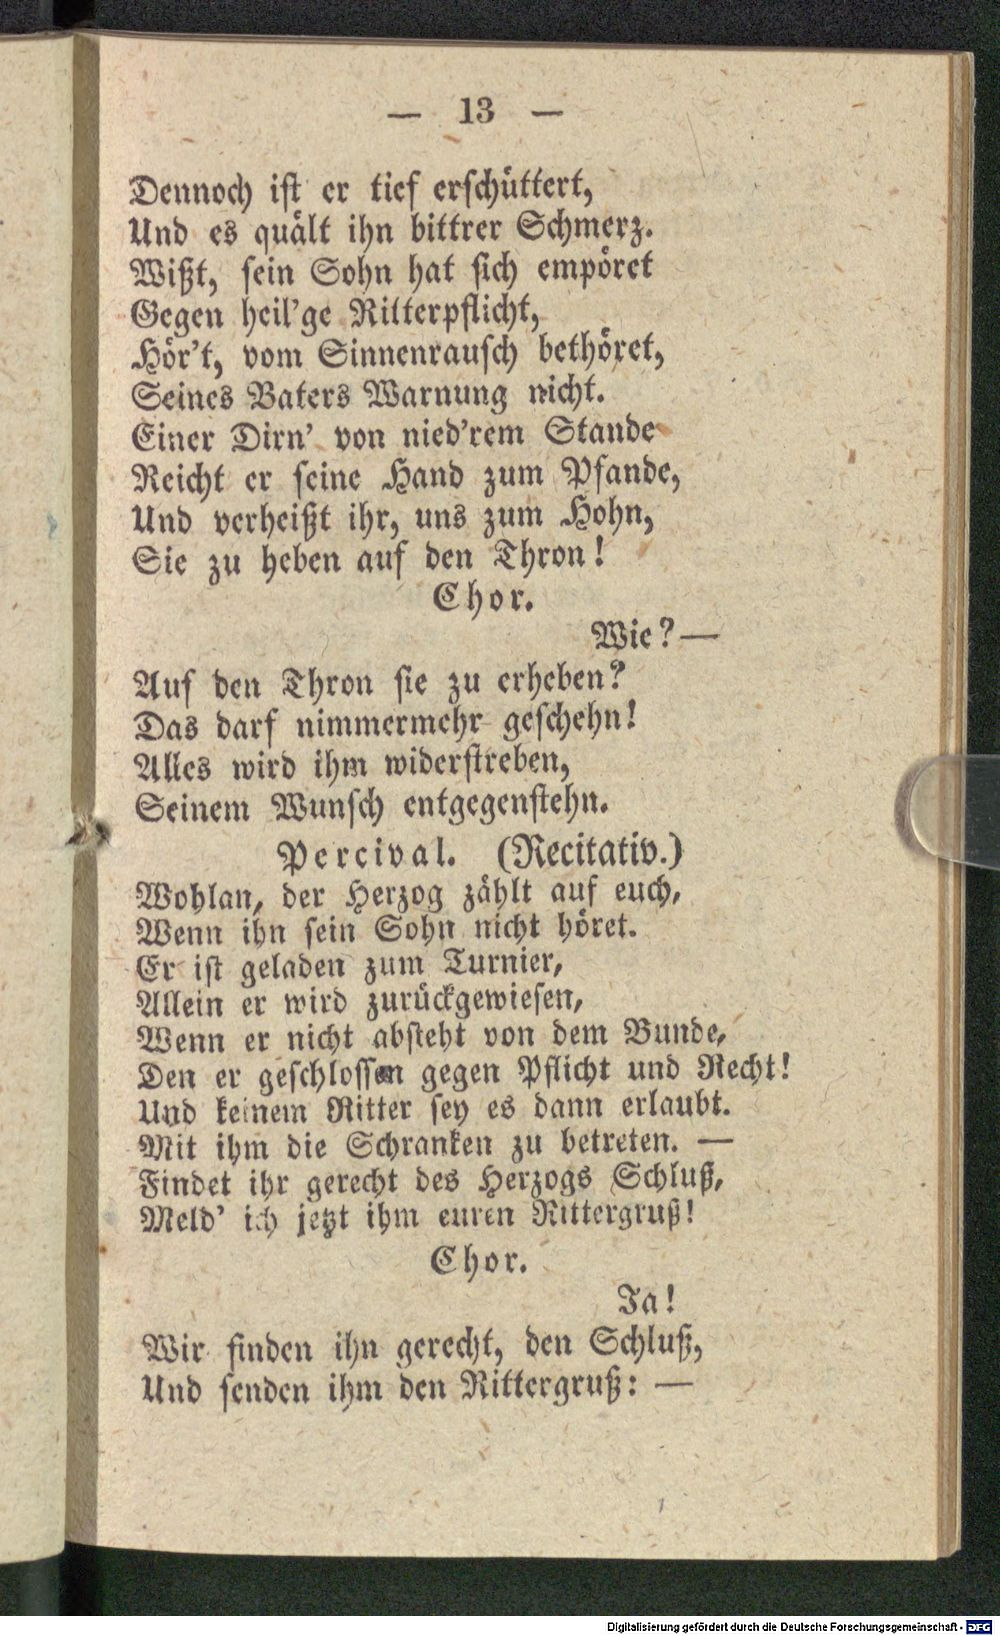 — 13 —
Dennoch ist er tief erschüttert,
Und es quält ihn bittrer Schmerz.
Wißt, sein Sohn hat sich empöret
Gegen heil'ge Ritterpflicht,
Hör't, vom Sinnenrausch bethöret,
Seines Vaters Warnung nicht.
Einer Dirn' von nied'rem Stande
Reicht er seine Hand zum Pfande,
Und verheißt ihr, uns zum Hohn,
Sie zu heben auf den Thron!
Chor.
Wie? —
Auf den Thron sie zu erheben?
Das darf nimmermehr geschehn!
Alles wird ihm widerstreben,
Seinem Wunsch entgegenstehn.
Percival. (Recitativ.)
Wohlan, der Herzog zählt auf euch,
Wenn ihn sein Sohn nicht höret.
Er ist geladen zum Turnier,
Allein er wird zurückgewiesen,
Wenn er nicht absteht von dem Bunde,
Den er geschlossen gegen Pflicht und Recht!
Und keinem Ritter sey es dann erlaubt.
Mit ihm die Schranken zu betreten. —
Findet ihr gerecht des Herzogs Schluß,
Meld' ich jetzt ihm euren Rittergruß!
Chor.
Ja!
Wir finden ihn gerecht, den Schluß,
Und senden ihm den Rittergruß: —
Digitalisierung gefördert durch die Deutsche Forschungsgemeinschaft - DFG